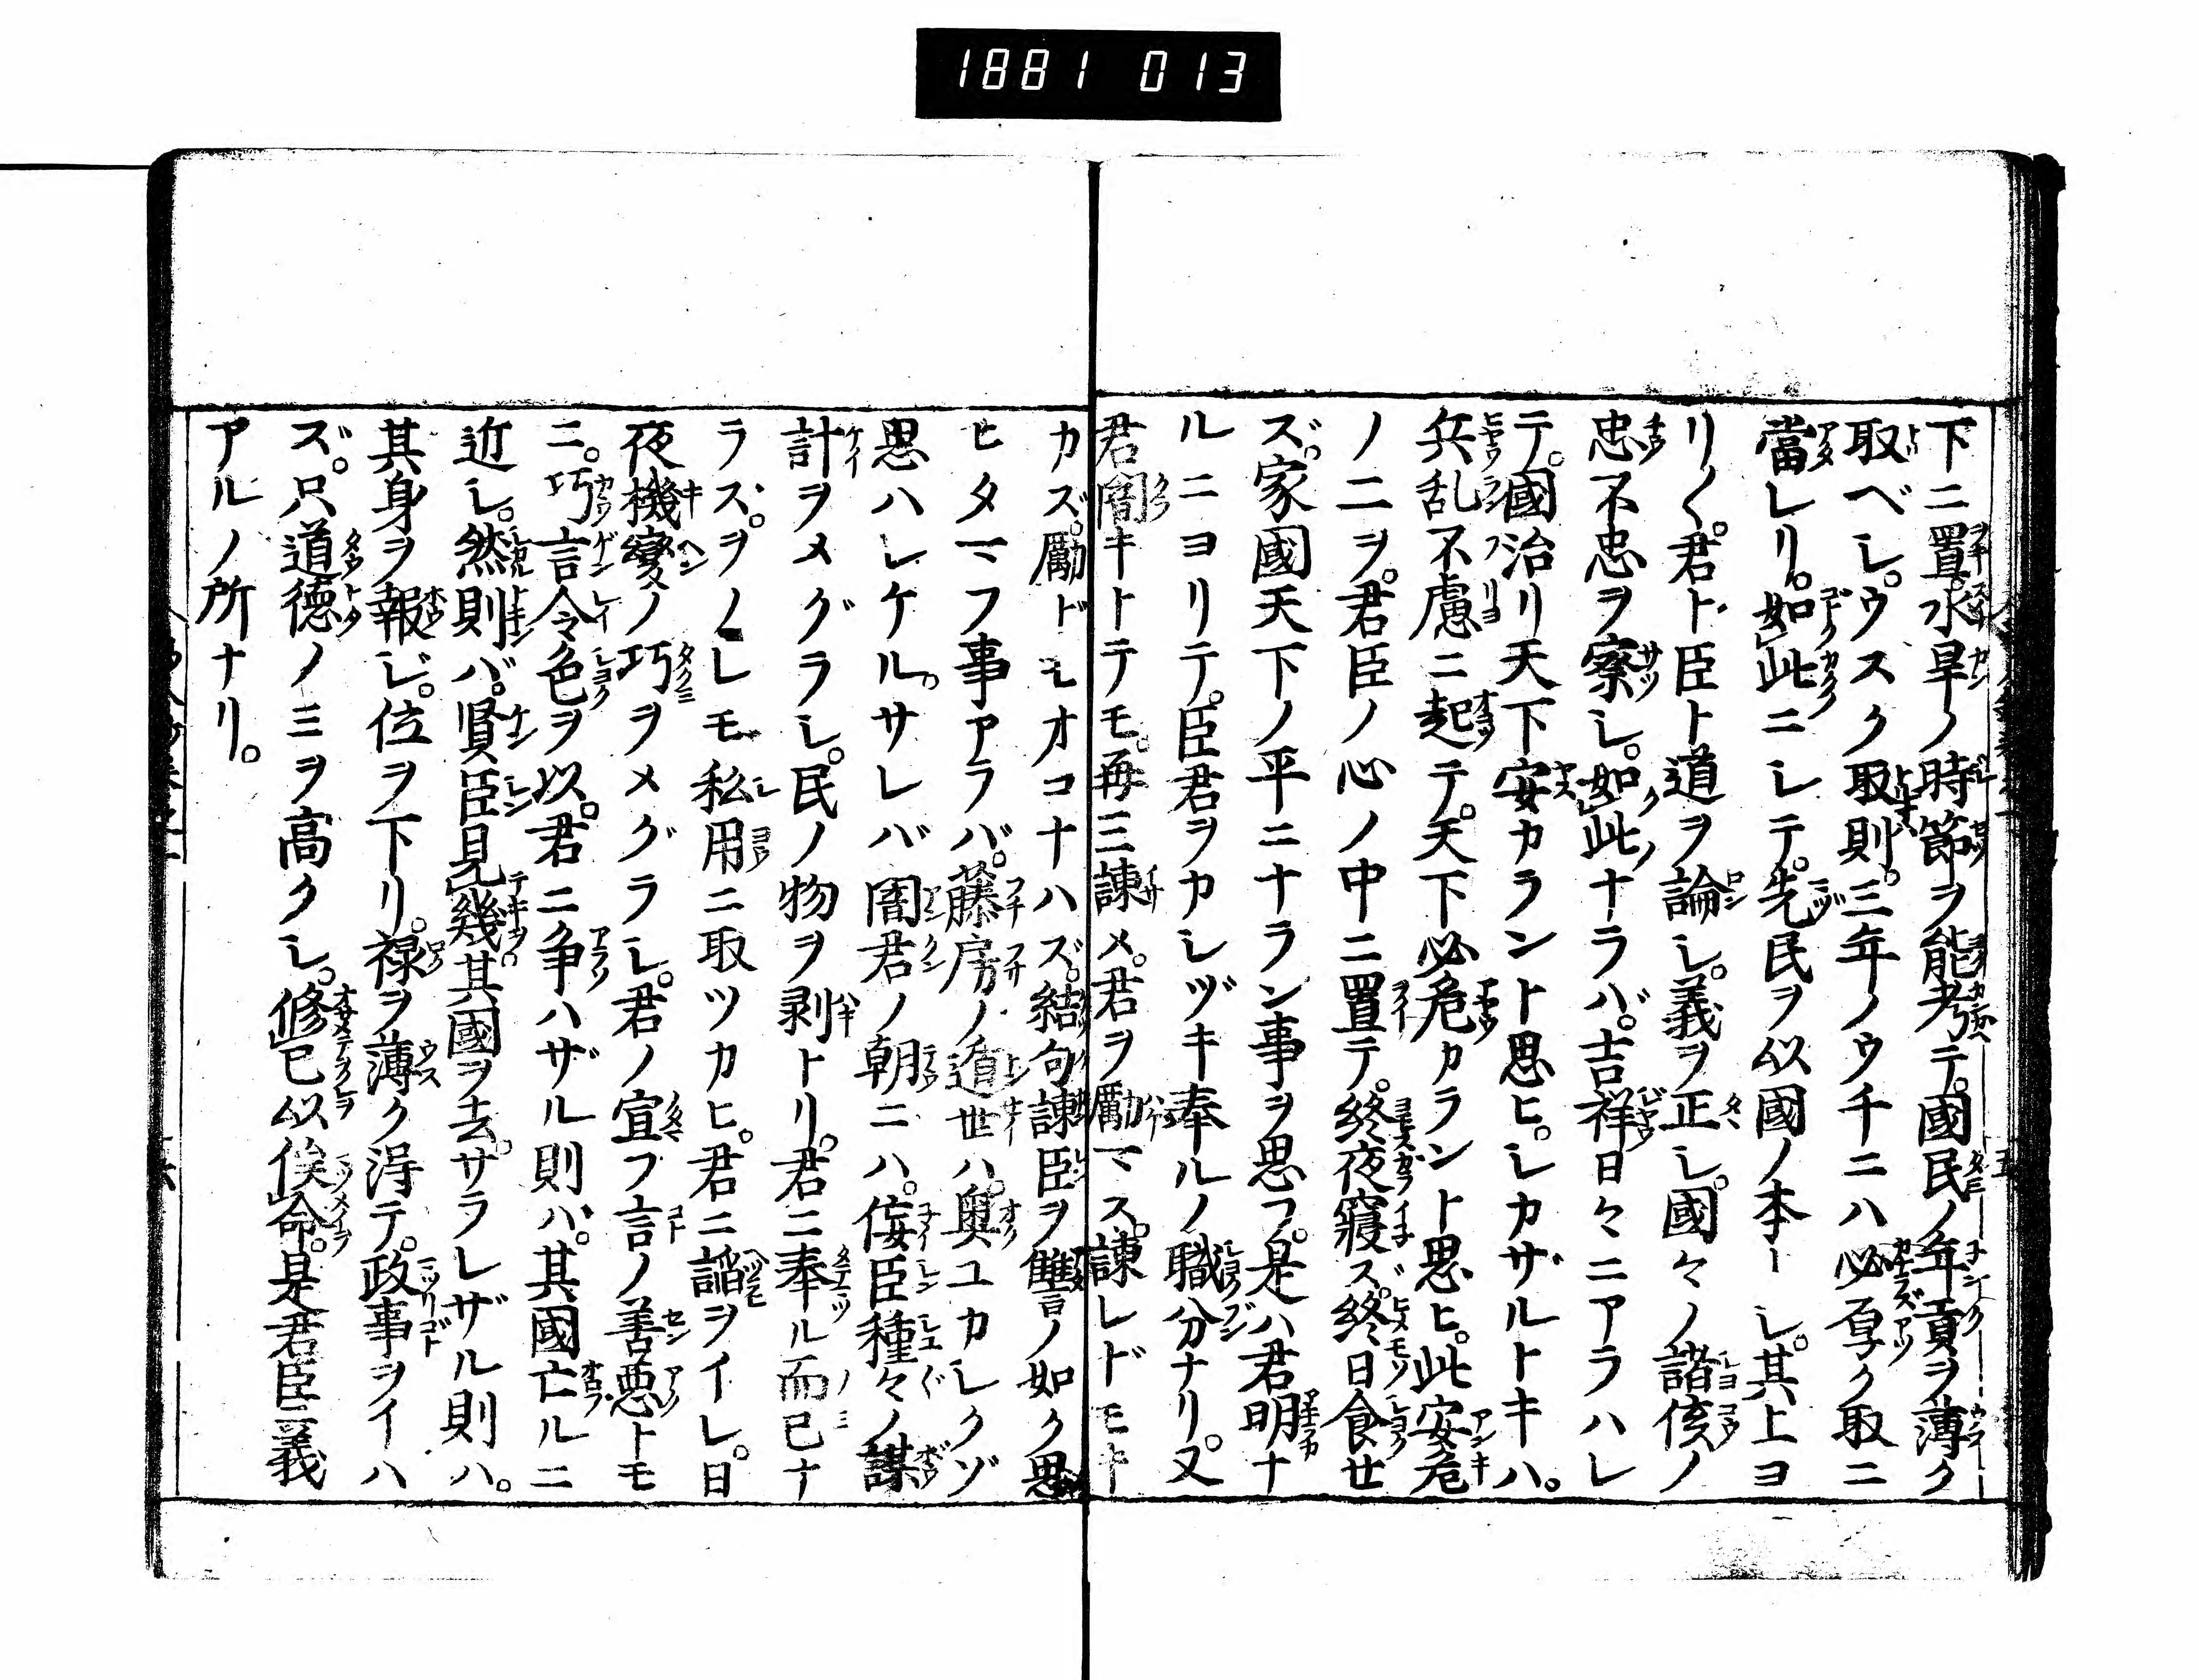 1881 013
下ニ置。水旱ノ時節ヲ能考テ。國民ノ年貢ヲ薄ク
取ベシ。ウスク取則。三年ノウチニハ必厚ク取ニ
當レリ。如此ニシテ。先民ヲ以國ノ本トシ。其上ヨ
リ〱。君ト臣ト道ヲ論シ。義ヲ正シ。國々ノ諸侯ノ
忠不忠ヲ察シ。如此ナラバ。吉祥日々ニアラハレ
テ。國治リ天下安カラント思ヒ。シカザルトキハ。
兵乱不慮ニ起テ。天下必危カラント思ヒ。此安危
ノ二ヲ。君臣ノ心ノ中ニ置テ。終夜寝ズ。終日食セ
ズ。家國天下ノ平ニナラン事ヲ思フ。是ハ君明ナ
ルニヨリテ。臣君ヲカシヅキ奉ルノ職分ナリ。又
君闇キトテモ。再三諫メ。君ヲ勵マス。諫レドモキ
カズ。勵ドモオコナハズ。結句諫臣ヲ讐ノ如ク思
ヒタマフ事アラバ。藤房ノ遁世ハ。奥ユカシクゾ
思ハシケル。サレバ闇君ノ朝ニハ。侫臣種々ノ謀
計ヲメグラシ。民ノ物ヲ剥トリ。君ニ奉ル而已ナ
ラズ。ヲノレモ私用ニ取ツカヒ。君ニ謟ヲイレ。日
夜機變ノ巧ヲメグラシ。君ノ宣フ言ノ善悪トモ
ニ。巧言令色ヲ以。君ニ争ハザル則ハ。其國亡ルニ
近シ。然則バ。賢臣見幾。其國ヲ去。サラレザル則ハ。
其身ヲ報ジ。位ヲ下リ。禄ヲ薄ク淂テ。政事ヲイハ
ズ。只道徳ノミヲ高クシ。修已以俟命。是君臣ニ義
アルノ所ナリ。